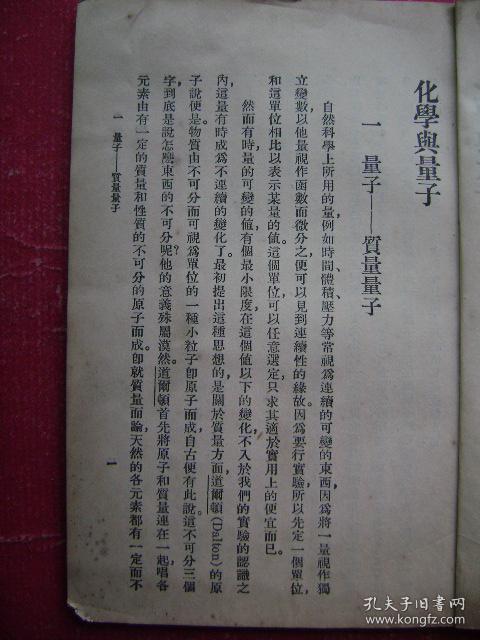 化學與量子
一 量子——質量量子
自然科學上所用的量,例如時間、體積、壓力等常視爲連續的可變的東西,因爲將一量視作獨
立變數,以他量視作函數而微分之,便可以見到連續性的緣故。因爲要行實驗,所以先定一個單位,
和這單位相比以表示某量的値。這個單位,可以任意選定,只求其適於實用上的便宜而已。
然而有時,量的可變的値,有個最小限度,在這個値以下的變化,不入於我們的實驗的認識之
內,這量有時成爲不連續的變化了。最初提出這種思想的,是關於質量方面,道爾頓(Dalton)的原
子說便是。物質由不可分而可視爲單位的一種小粒子即原子而成,自古便有此說。這不可分三個
字到底是說怎麼東西的不可分呢?他的意義殊屬漠然。道爾頓首先將原子和質量連在一起,唱各
元素由有一定的質量和性質的不可分的原子而成。卽就質量而論,天然的各元素都有一定而不
一 量子——質量量子
一
孔夫子旧书网
www.kongfz.com